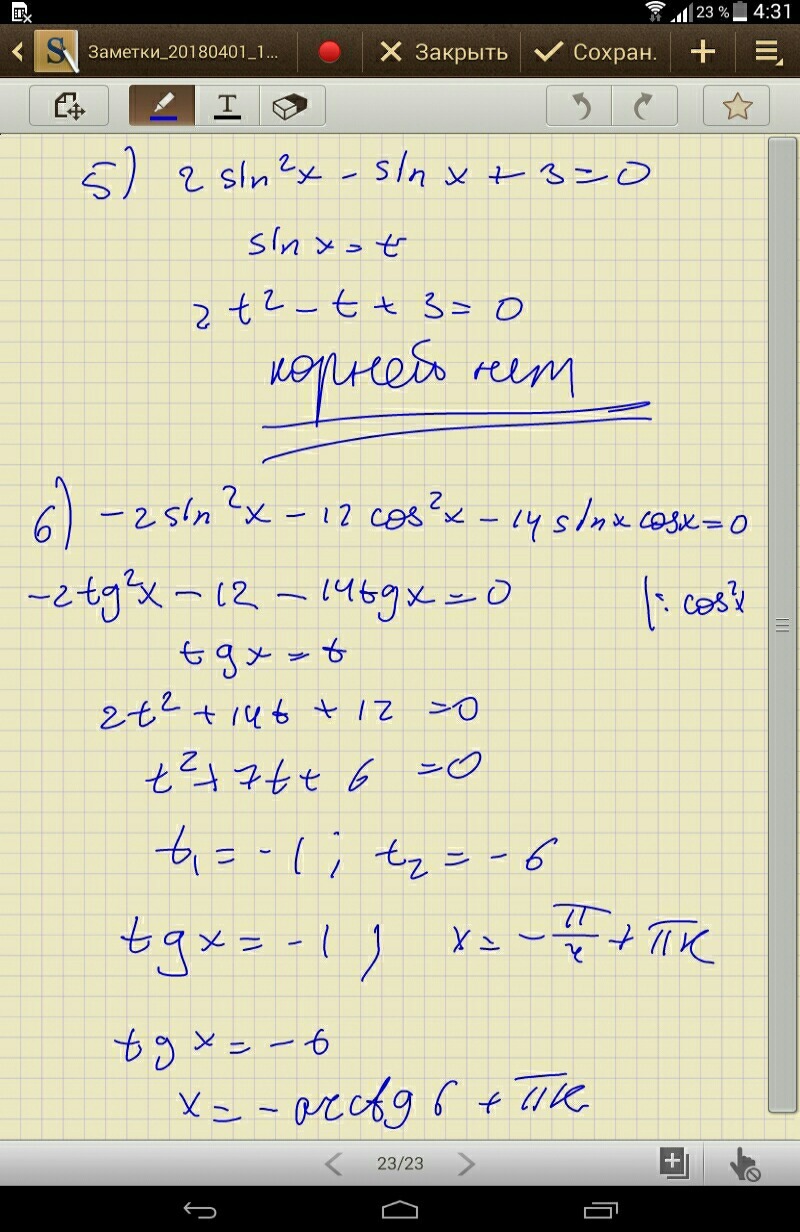 23 % 4:31
Заметки_20180401_1... Закрыть Сохран.
T
5) 2 sin²x - sin x + 3 = 0
sin x = t
2t² - t + 3 = 0
корней нет
6) -2 sin²x - 12 cos²x - 14 sin x cosx = 0
-2tg²x - 12 - 14tgx = 0 |: cos²x
tgx = t
2t² + 14t + 12 = 0
t² + 7t + 6 = 0
t₁ = -1; t₂ = -6
tgx = -1; x = -π/4 + πk
tgx = -6
x = -arctg 6 + πk
23/23